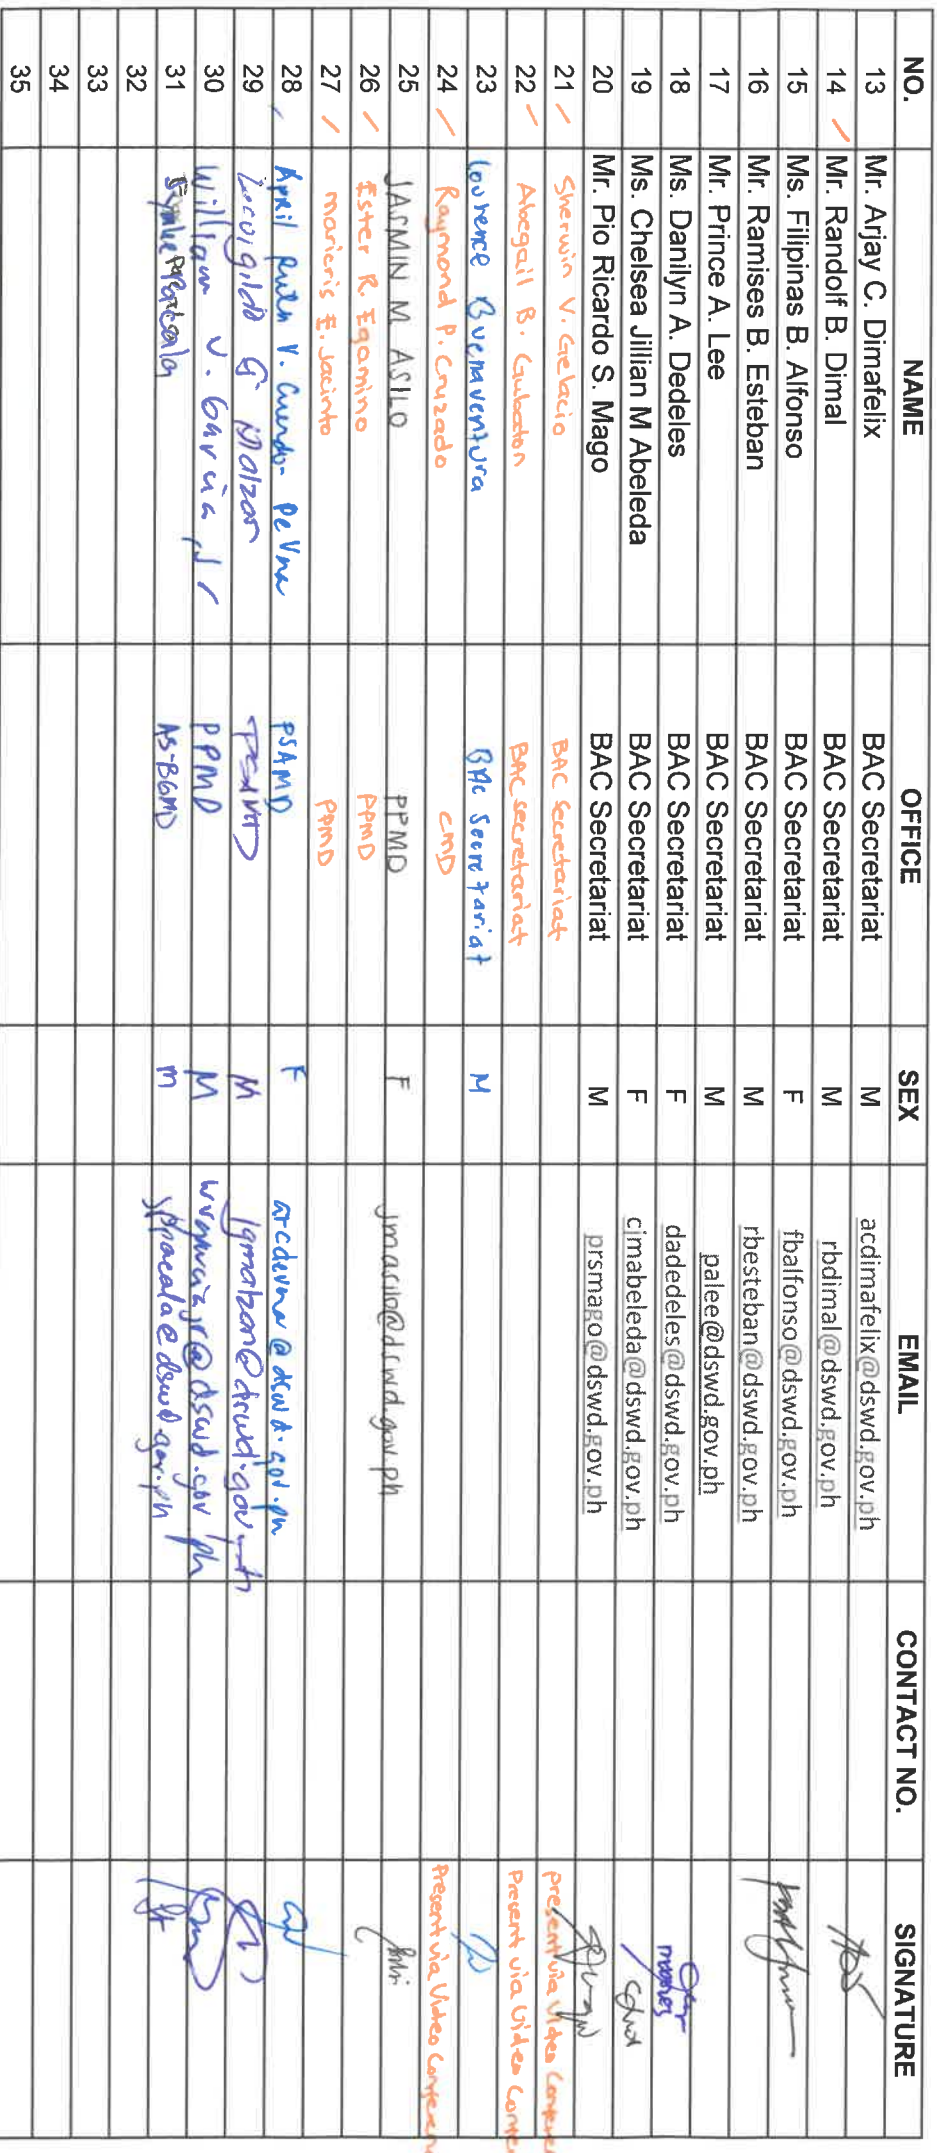 NO. NAME OFFICE SEX EMAIL CONTACT NO. SIGNATURE
13 Mr. Arjay C. Dimafelix BAC Secretariat M acdimafelix@dswd.gov.ph
14 Mr. Randolf B. Dimal BAC Secretariat M rbdimal@dswd.gov.ph
15 Ms. Filipinas B. Alfonso BAC Secretariat F fbalfonso@dswd.gov.ph
16 Mr. Ramises B. Esteban BAC Secretariat M rbesteban@dswd.gov.ph
17 Mr. Prince A. Lee BAC Secretariat M palee@dswd.gov.ph
18 Ms. Danilyn A. Dedeles BAC Secretariat F dadedeles@dswd.gov.ph
19 Ms. Chelsea Jillian M Abeleda BAC Secretariat F cjmabeleda@dswd.gov.ph
20 Mr. Pio Ricardo S. Mago BAC Secretariat M prsmago@dswd.gov.ph
21 Sherwin V. Gelacio BAC Secretariat present via Video
22 Abegail B. Gubaton BAC Secretariat Present via Video
23 Lourence Buenaventura BAC Secretariat M
24 Raymond P. Cruzado CMD Present via Video
25 JASMIN M. ASILO PPMD F jmasilo@dswd.gov.ph
26 Ester R. Egamino PPMD
27 Maricris E. Jacinto PPMD
28 April Ruth V. PSAMD F @dswd.gov.ph
29 G. Malzan PSAMD M
30 William V. Garcia Jr PPMD M wvgarciajr@dswd.gov.ph
31 Pacala AS-BGMD M
32
33
34
35